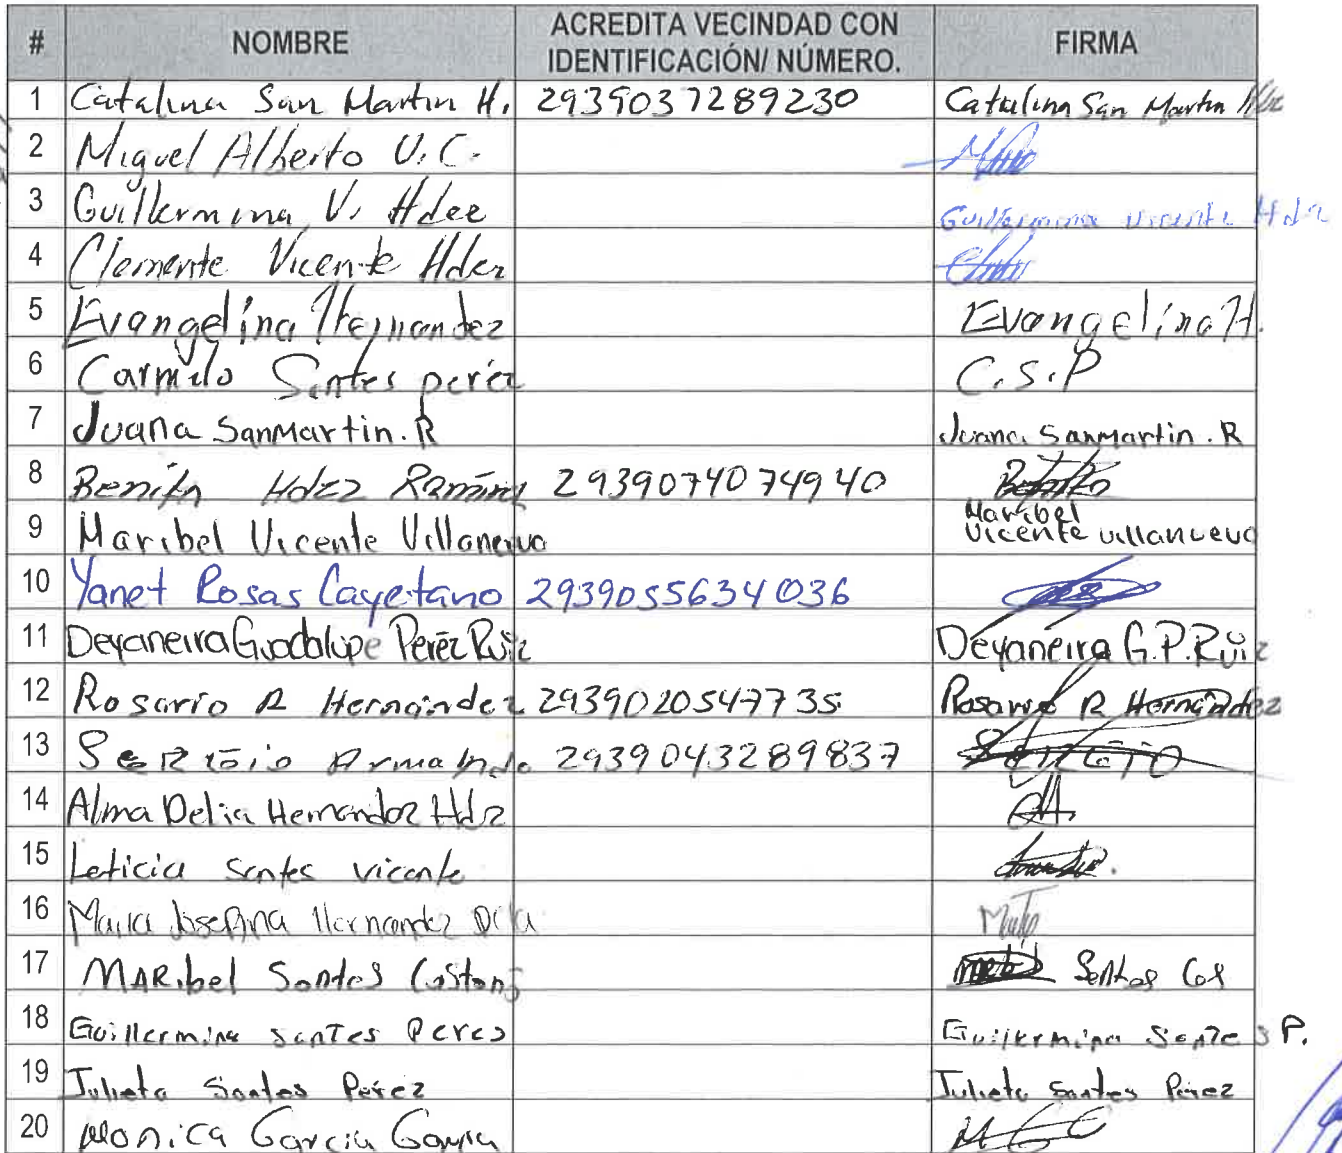 # NOMBRE ACREDITA VECINDAD CON IDENTIFICACIÓN/ NÚMERO. FIRMA
1 Catalina San Martin H. 2939037289230 Catalina San Martin Hdz
2 Miguel Alberto V.C.
3 Guillermina V. Hdez Guillermina Vicente Hdz
4 Clemente Vicente Hdez
5 Evangelina Hernandez Evangelina H.
6 Carmelo Santes perez C.S.P
7 Juana SanMartin.R Juana SanMartin.R
8 Benita Hdez Ramirez 2939074074940
9 Maribel Vicente Villanueva Maribel Vicente villanueva
10 Yanet Rosas Cayetano 2939055634036
11 Deyaneira Guadalupe Peréz Ruiz Deyaneira G.P.Ruiz
12 Rosario R Hernández 2939020547735 Rosario R Hernández
13 Sergio Armando 2939043289837 Sergio
14 Alma Delia Hernandez Hdz
15 Leticia santes vicente
16 Maria Josefina Hernandez
17 MARibel Santes Santes
18 Guillermina santes Peres Guillermina Santes P.
19 Julieta Santes Pérez Julieta Santes Pérez
20 Monica Garcia Garcia